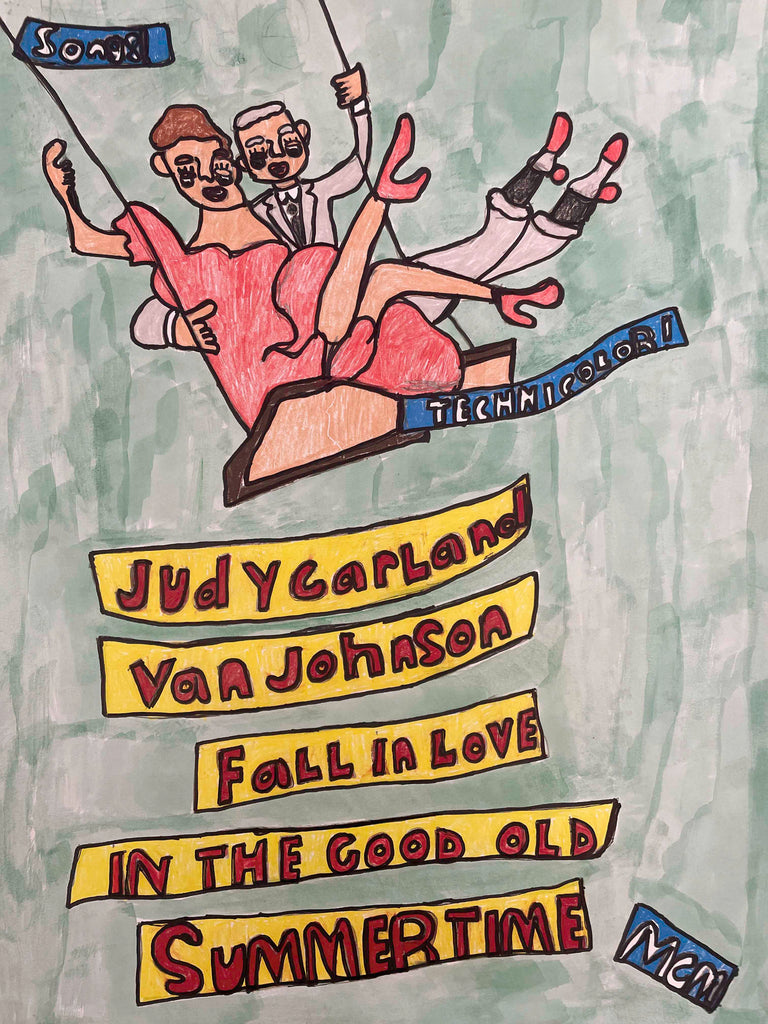 Songs
TECHNICOLOR!
Judy Garland
Van Johnson
Fall in Love
IN THE GOOD OLD
SUMMERTIME
MGM